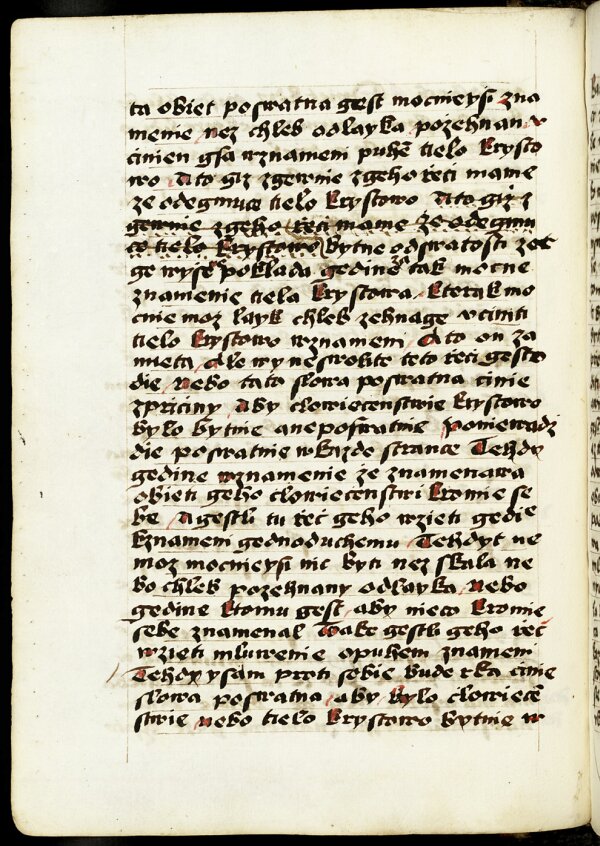 ta obiet poswatna gest mocnieyssi zna
menie nez chleb odlayka pozehnany v
cinien gsa wznameni puhe tielo krysto
wo A to giz zgewnie zgeho řeči mame
ze odegmuce tielo krystowo A to giz z
gewnie zgeho řeči mame ze odegmu
ce tielo krystowo bytne odswatosti zet
ge wysse poklada gedine tak mocne
znamenie tiela krystowa kterak mo
cnie moz layk chleb zehnage vciniti
tielo krystowo wznameni A to on za
mieta Ale wy neswobte teto řeči gesto
die Nebo tato slowa poswatna cinie
zpriciny Aby clowiecenstwie krystowo
bylo bytnie a neposwatnie Poniewadz
die poswatnie wkazde strance Tehdy
gedine wznamenie že znamenawa
obieti geho clowiecenstwi kromie se
be A gestli tu řeč geho wzieti gedie
kznameni gednoduchemu Tehdyt ne
moz mocnieyssi nic byti nez skala ne
bo chleb pozehnany odlayka Nebo
gedine ktomu gest aby nieco kromie
sebe znamenal Take gestli geho řeč
wzieti mluwenie opuhem znameni
Tehdy y sam proti sobie bude rka cinie
slowa poswatna aby bylo clowiece
stwie nebo tielo krystowo bytnie w